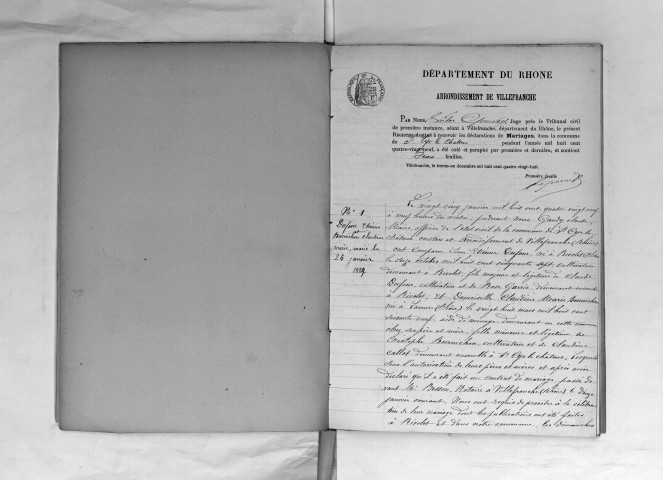 DÉPARTEMENT DU RHONE
ARRONDISSEMENT DE VILLEFRANCHE
PAR NOUS, Juge près le Tribunal civil
de première instance, séant à Villefranche, département du Rhône, le présent
REGISTRE destiné à recevoir les déclarations de Mariages, dans la commune
de St Cyr le Chatoux pendant l'année mil huit cent
quatre-vingt-neuf, a été coté et paraphé par première et dernière, et contient
feuilles.
Villefranche, le trente-un décembre mil huit cent quatre vingt-huit.
Première feuille
N° 1
Dufour Etienne
et
Burnichon Claudine
Marie, mariés le
janvier
1889
Le vingt cinq janvier mil huit cent quatre vingt neuf
à neuf heures du matin; pardevant nous Gaudy
Maire, officier de l'état civil de la commune de St Cyr le
Chatoux canton et arrondissement de Villefranche (Rhône)
ont comparu Etienne Dufour, né à Rivolet (Rhône)
le octobre mil huit cent cinquante sept, cultivateur
demeurant à Rivolet, fils majeur et légitime de Claude
Dufour cultivateur et de Rose demeurant ensemble
à Rivolet, Et Demoiselle Claudine Marie Burnichon
née à Lamure (Rhône) le vingt huit mars mil huit cent
soixante neuf, aide de ménage demeurant en cette commune
chez ses père et mère, fille mineure et légitime de
Burnichon, cultivateur et de Claudine
demeurant ensemble à St Cyr le chatoux, lesquels
sous l'autorisation de leurs pères et mères et après avoir
déclaré qu'il a été fait un contrat de mariage, passé de-
vant Me Besson, Notaire à Villefranche (Rhône) le douze
janvier courant, Nous ont requis de procéder à la célébra-
tion de leur mariage dont les publications ont été faites
à Rivolet et dans notre commune, les Dimanches